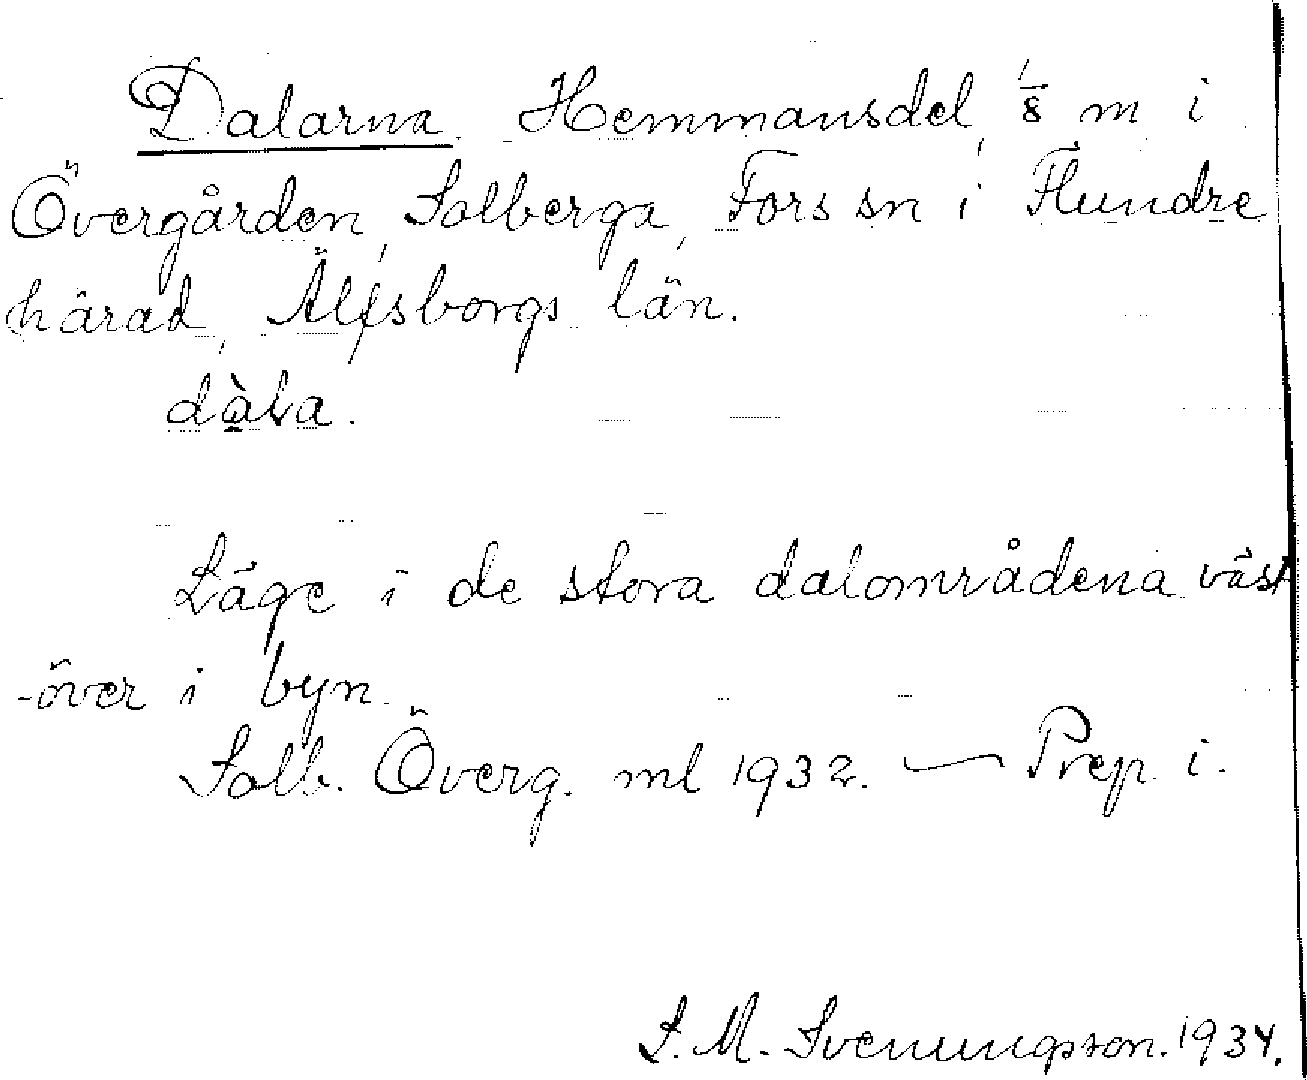 Dalarna Hemmansdel, 1/8 m i
Övergården, Solberga, Fors sn i Flundre
härad, Älfsborgs län.
dàla.
Läge i de stora dalområdena väst
-över i byn.
Solb. Överg. ml 1932. — Prep. i.
S. M. Svenungsson. 1934.